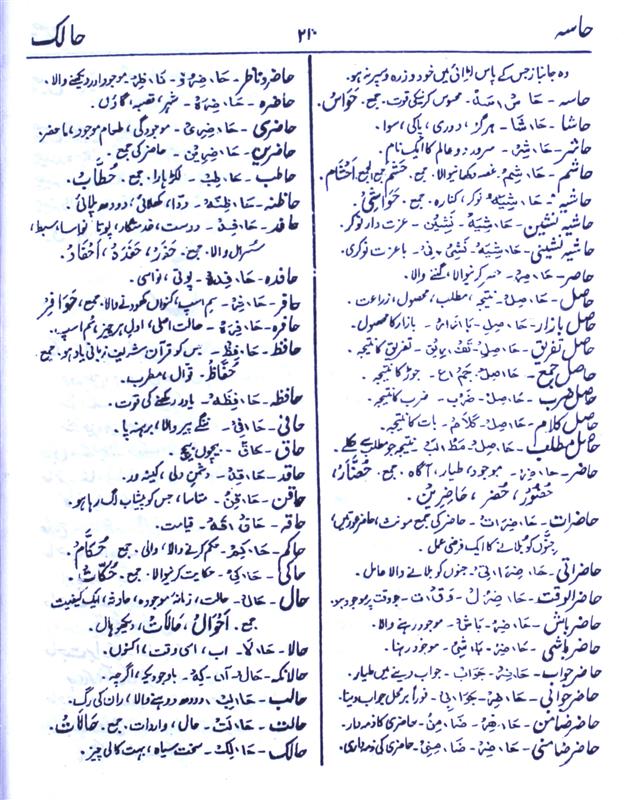 حاسہ
۲۱۰
حالک
وہ جانباز جس کے پاس لڑائی میں خود و زرہ و سپر نہ ہو۔
حاسہ - حَا سْ سَہْ - محسوس کرنیکی قوت جمع۔ حَوَاسّ۔
حاشا - حَا، شَا - ہرگز، دوری، پاکی، سوا۔
حاشر - حَا، شِرْ - سرور دو عالم کا ایک نام۔
حاشم - حَا، شِمْ - غصہ دکھانیوالا۔ جمع۔ حَشَمْ جمع الجمع اَحْشَام۔
حاشیہ - حَا، شِیَہْ - نوکر، کنارہ۔ جمع۔ حَوَاشِیْ۔
حاشیہ نشین - حَا، شِیَہْ - نَشِیْن - عزت دار نوکر۔
حاشیہ نشینی - حَا، شِیَہْ - نَشِیْ، نِیْ - باعزت نوکری۔
حاصر - حَا، صِرْ - حصر کرنیوالا، گننے والا۔
حاصل - حَا، صِلْ - نتیجہ، مطلب، محصول، زراعت۔
حاصل بازار - حَا، صِلِ - بَا، زَارْ - بازار کا محصول۔
حاصل تفریق - حَا، صِلِ - تَفْ، رِیْقْ - تفریق کا نتیجہ۔
حاصل جمع - حَا، صِلِ - جَمْ، عْ - جوڑ کا نتیجہ۔
حاصل ضرب - حَا، صِلِ - ضَرْب - ضرب کا نتیجہ۔
حاصل کلام - حَا، صِلِ - کَلَامْ - بات کا نتیجہ۔
حاصل مطلب - حَا، صِلِ - مَطْ، لَبْ - نتیجہ جو مطلب سے نکلے۔
حاضر - حَا، ضِرْ - موجود، طیار، آگاہ۔ جمع۔ حُضَّارْ،
حُضُوْر، حُضَر، حَاضِرِیْن۔
حاضرات - حَا، ضِ، رَاتْ - حاضر کی جمع مونث، حاضر عورتیں،
جنّوں کو بلانے کا ایک فرضی عمل۔
حاضراتی - حَا، ضِ، رَا، تِیْ - جنوں کو بلانے والا عامل۔
حاضر الوقت - حَا، ضِ، رُلْ - وَقْت - جو وقت پر موجود ہو۔
حاضر باش - حَا، ضِرْ - بَاشْ - موجود رہنے والا۔
حاضر باشی - حَا، ضِرْ - بَا، شِیْ - موجود رہنا۔
حاضر جواب - حَا، ضِرْ - جَوَابْ - جواب دینے میں طیار۔
حاضر جوابی - حَا، ضِرْ - جَوَا، بِیْ - فوراً برمحل جواب دینا۔
حاضر ضامن - حَا، ضِرْ - ضَا، مِنْ - حاضری کا ذمہ دار۔
حاضر ضامنی - حَا، ضِرْ - ضَا، مِنِیْ - حاضری کی ذمہ داری۔
حاضر و ناظر - حَا، ضِ، رُ وْ - نَا، ظِرْ - موجود اور دیکھنے والا۔
حاضرہ - حَا، ضِ، رَہْ - شہر، قصبہ، گاؤں۔
حاضری - حَا، ضِ، رِیْ - موجودگی، طعام موجود، ماحضر۔
حاضرین - حَا، ضِ، رِیْنْ - حاضر کی جمع۔
حاطب - حَا، طِبْ - لکڑہارا۔ جمع۔ حُطَّابْ۔
حاظنہ - حَا، ظِنَہْ - دوا، کھلائی، دودھ پلائی۔
حافد - حَا، فِدْ - دوست، خدمتگار، پوتا، نواسا، سبط،
سسرال والا۔ جمع۔ حَفَدْ، حَفَدَہْ، اَحْفَادْ۔
حافدہ - حَا، فِدَہْ - پوتی، نواسی۔
حافر - حَا، فِرْ - سم اسپ، کنواں کھودنے والا۔ جمع۔ حَوَافِرْ۔
حافرہ - حَا، فِ، رَہْ - حالت اصلی، اول ہر چیز، سم اسپ۔
حافظ - حَا، فِظْ - جس کو قرآن شریف زبانی یاد ہو۔ جمع۔
حُفَّاظْ۔ قوال، مطرب۔
حافظہ - حَا، فِظَہْ - یاد رکھنے کی قوت۔
حافی - حَا، فِیْ - ننگے پیر والا، برہنہ پا۔
حاق - حَاقْ - بیچوں بیچ۔
حاقد - حَا، قِدْ - دشمن دلی، کینہ ور۔
حاقن - حَا، قِنْ - متاسا، جس کو پیشاب لگ رہا ہو۔
حاقہ - حَاقْ، قَہْ - قیامت۔
حاکم - حَا، کِمْ - حکم کرنے والا، والی۔ جمع۔ حُکَّامْ۔
حاکی - حَا، کِیْ - حکایت کرنیوالا۔ جمع۔ حُکَّاتْ۔
حال - حَالْ - حالت، زمانۂ موجودہ، حادثہ، ایک کیفیت۔
جمع۔ اَحْوَالْ، حَالَاتْ، دیکھو ہال۔
حالا - حَا، لَا - اب، اسی وقت، اکنوں۔
حالانکہ - حَا، لْ - آں - کِہْ - باوجودیکہ، اگرچہ۔
حالب - حَا، لِبْ - دودھ دوہنے والا، ران کی رگ۔
حالت - حَا، لَتْ - حال، واردات۔ جمع۔ حَالَاتْ۔
حالک - حَا، لِکْ - سخت سیاہ، بہت کالی چیز۔